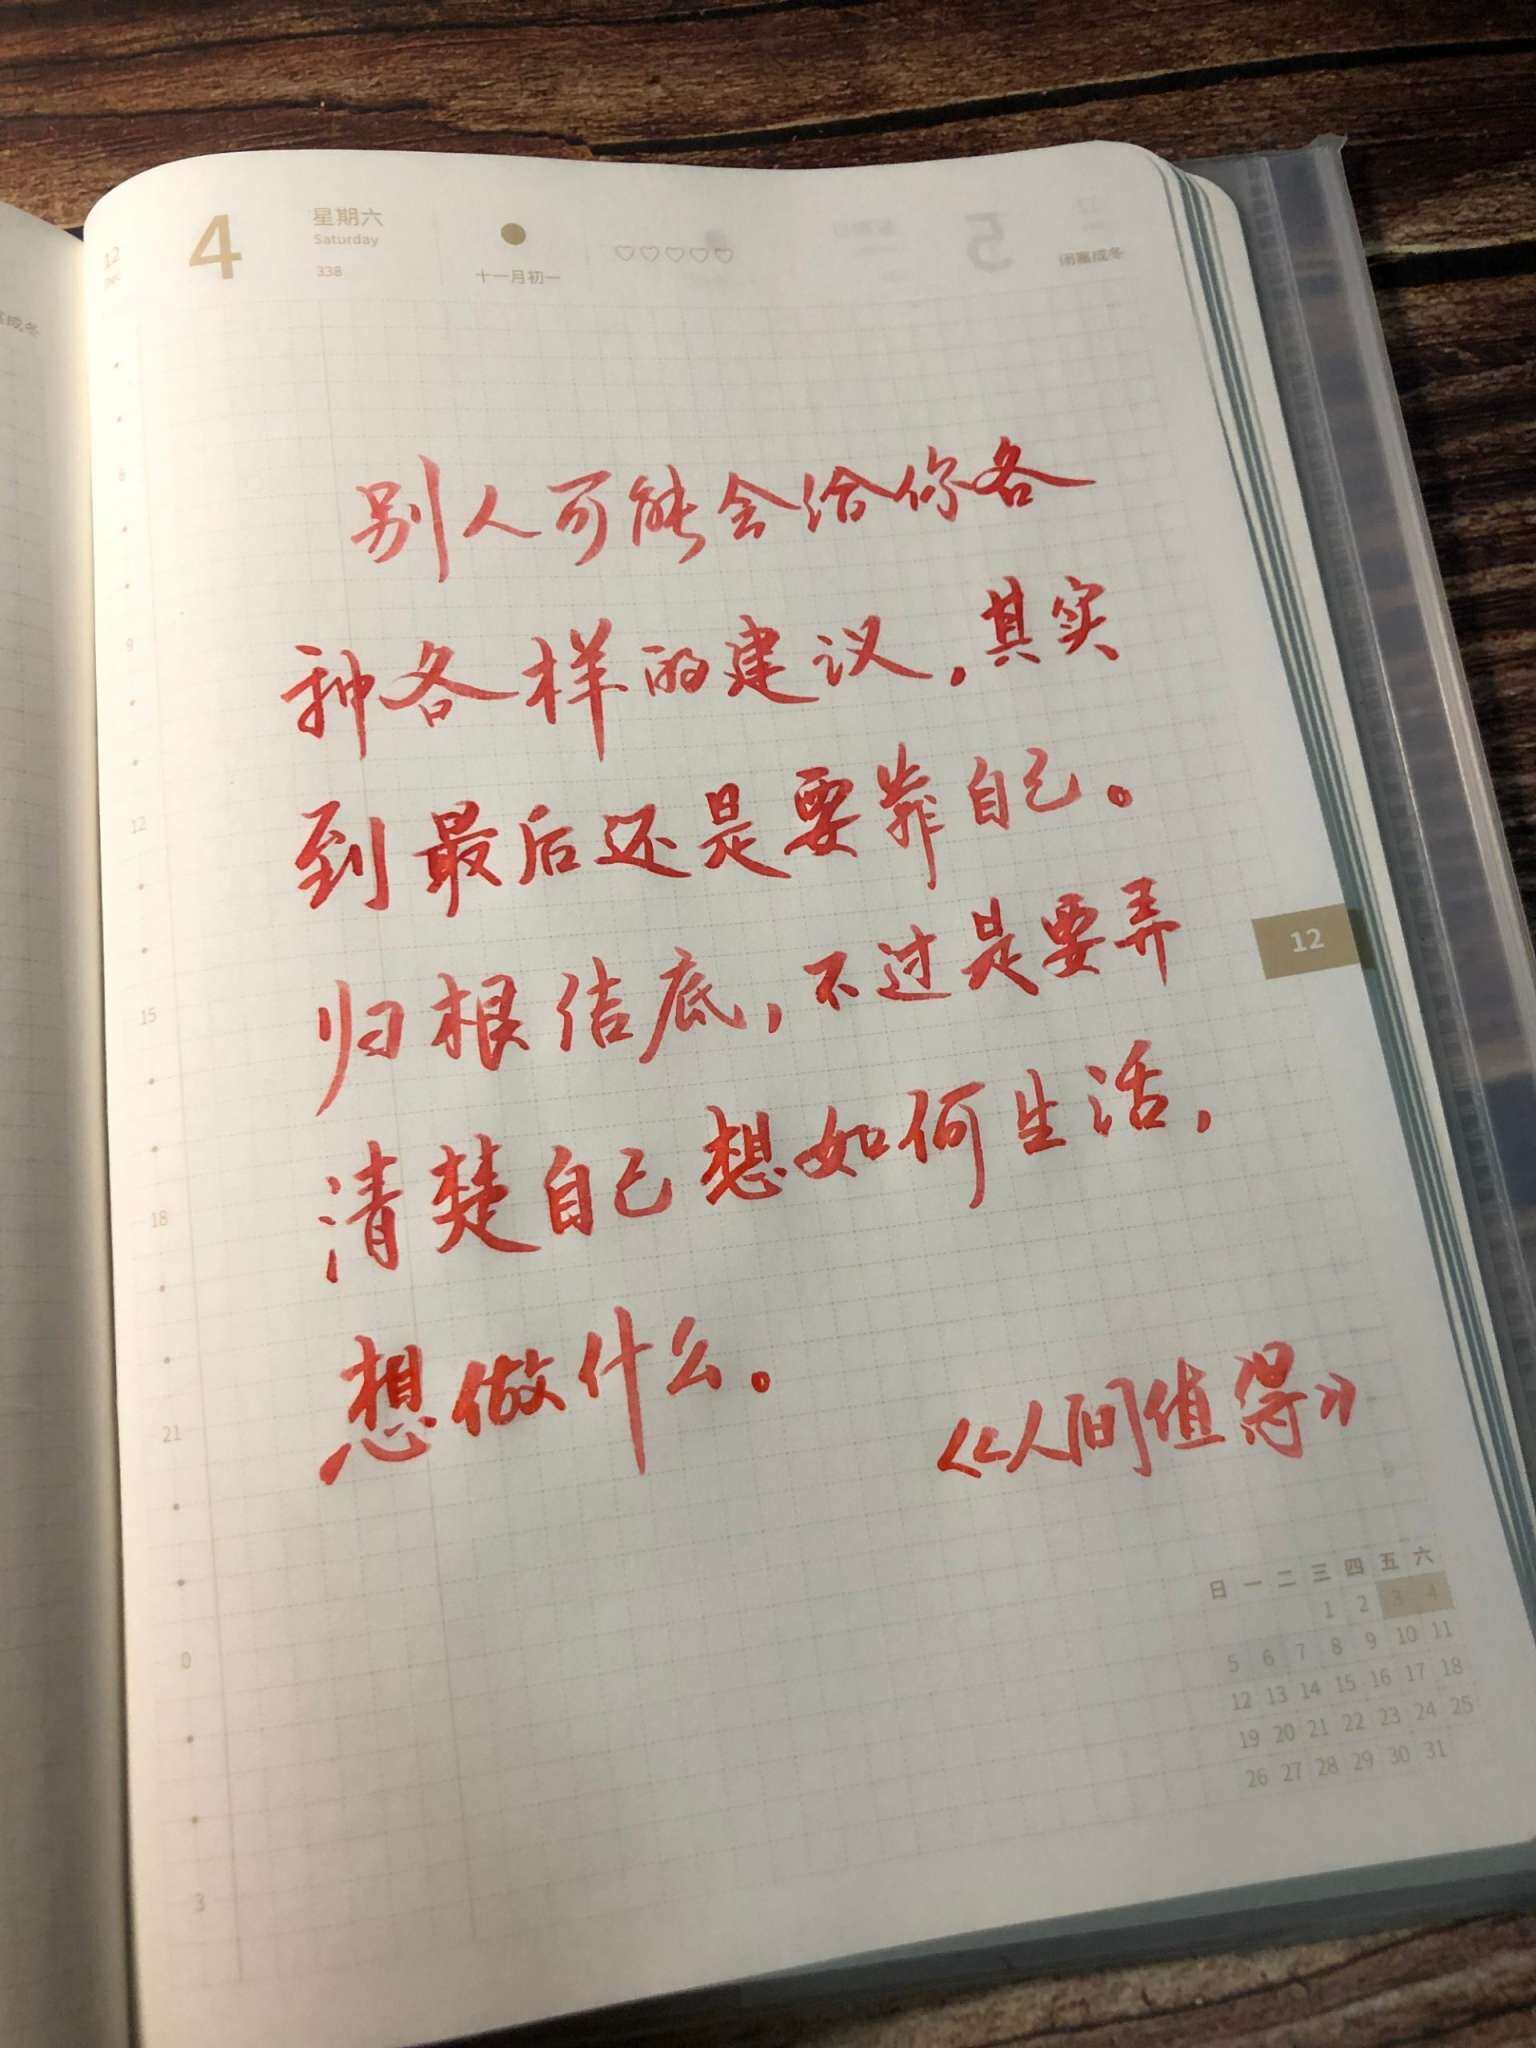 12
4
星期六
Saturday
338
十一月初一
闭塞成冬
别人可能会给你各
种各样的建议，其实
到最后还是要靠自己。
归根结底，不过是要弄
清楚自己想如何生活，
想做什么。
《人间值得》
12
9
12
15
18
21
0
3
日 一 二 三 四 五 六
1 2 3 4
5 6 7 8 9 10 11
12 13 14 15 16 17 18
19 20 21 22 23 24 25
26 27 28 29 30 31